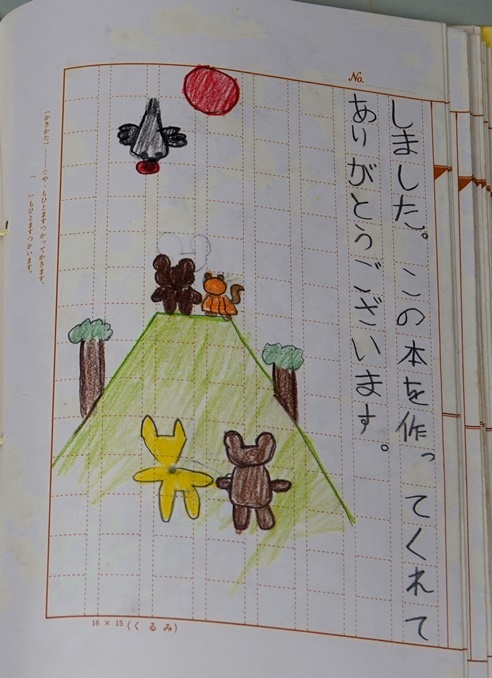 No.
しました。この本を作ってくれて
ありがとうございます。
(かきかた)……○や、もひとますつかってかきます。
「 」もひとますつかいます。
16×18(くるみ)